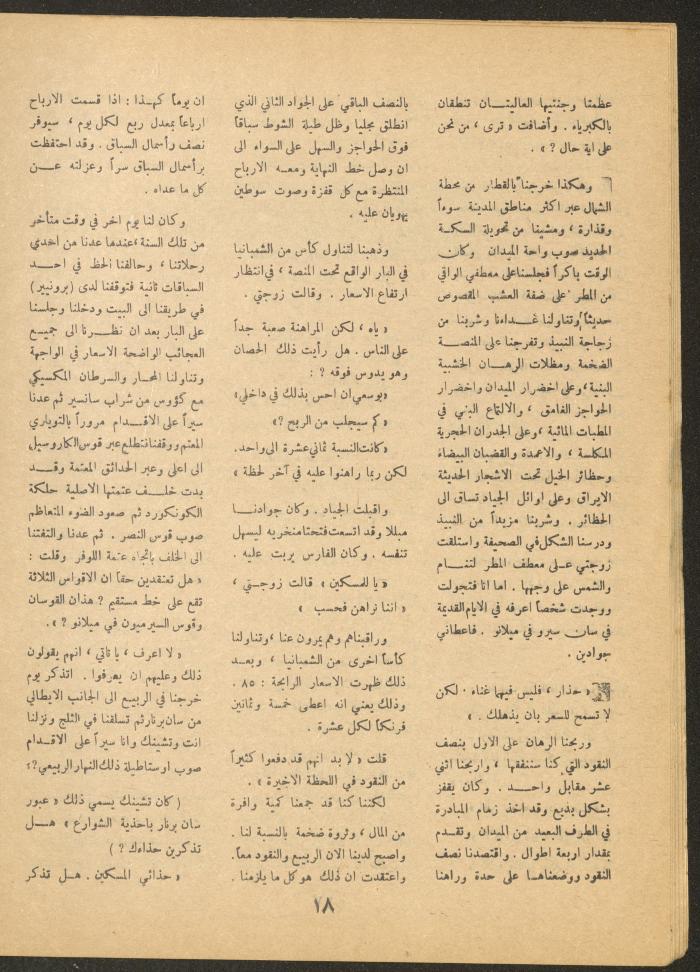 عظمتا وجنتيها العاليتـــان تنطقان
بالكبرياء . وأضافت « ترى ، من نحن
على اية حال ؟ » .
وهكذا خرجنا بالقطار من محطة
الشمال عبر اكثر مناطق المدينة سوءاً
وقذارة ، ومشينا من تحويلة السكـة
الحديد صوب واحة الميدان وكان
الوقت باكراً فجلسنا على معطفي الواقي
من المطر على ضفة العشب المقصوص
حديثاً وتناولنا غـــداءنا وشربنا من
زجاجة النبيذ وتفرجنا على المنصــة
الضخمة ومظلات الرهـان الخشبية
البنية ، وعلى اخضرار الميدان واخضرار
الحواجز الغامق ، والالتماع البني في
المطبات المائية ، وعلى الجدران الحجرية
المكلسة ، والاعمدة والقضبان البيضاء
وحظائر الخيل تحت الاشجار الحديثة
الايراق وعلى اوائل الجياد تساق الى
الحظائر . وشربنا مزيداً من النبيذ
ودرسنا الشكل في الصحيفة واستلقت
زوجتي عـــلى معطف المطر لتنـــام
والشمس على وجهها . اما انا فتجولت
ووجدت شخصاً اعرفه في الايام القديمة
في سان سيرو في ميلانو . فاعطاني
جوادين .
« حذار ، فليس فيهما غناء . لكن
لا تسمح للسعر بان يذهلك . »
وربحنا الرهان على الاول بنصف
النقود التي كنا سننفقها ، واربحنا اثني
عشر مقابل واحـــد . وكان يقفز
بشكل بديع وقد اخذ زمام المبادرة
في الطرف البعيد من الميدان وتقـدم
بمقدار اربعة اطوال . واقتصدنا نصف
النقود ووضعناهـا على حدة وراهنا
بالنصف الباقي على الجواد الثاني الذي
انطلق مجليا وظل طيلة الشوط سباقاً
فوق الحواجز والسهل على السواء الى
ان وصل خط النهاية ومعــه الارباح
المنتظرة مع كل قفزة وصوت سوطين
يهويان عليه .
وذهبنا لتناول كأس من الشمبانيا
في البار الواقع تحت المنصة ، في انتظار
ارتفاع الاسعار . وقالت زوجتي .
« ياه ، لكن المراهنة صعبة جداً
على الناس . هل رأيت ذلك الحصان
وهو يدوس فوقه ؟ :
« بوسعي ان احس بذلك في داخلي »
« كم سيجلب من الربح ؟ »
« كانت النسبة ثماني عشرة الى واحد .
لكن ربما راهنوا عليه في آخر لحظة »
واقبلت الجياد . وكان جوادنـــا
مبللا وقد اتسعت فتحتا منخريه ليسهل
تنفسه . وكان الفارس يربت عليه .
« يا للمسكين » قالت زوجــتي ،
« اننا نراهن فحسب »
وراقبناهم وهم يمرون عنا ، وتناولنا
كأساً اخرى من الشمبانيا ، وبعـــد
ذلك ظهرت الاسعار الرابحة : ٨٥ .
وذلك يعني انه اعطى خمسة وثمانين
فرنكاً لكل عشرة .
قلت « لا بد انهم قد دفعوا كثيراً
من النقود في اللحظة الاخيرة » .
لكننا كنا قد جمعنا كمية وافرة
من المال ، وثروة ضخمة بالنسبة لنا .
واصبح لدينا الان الربيع والنقود معاً .
واعتقدت ان ذلك هو كل ما يلزمنا .
ان يوماً كهـذا : اذا قسمت الارباح
ارباعاً بمعدل ربع لكل يوم ، سيوفر
نصف رأسمال السباق . وقد احتفظت
برأسمال السباق سراً وعزلته عــن
كل ما عداه .
وكان لنا يوم اخر في وقت متأخر
من تلك السنة ، عندما عدنا من احدى
رحلاتنا ، وحالفنا الحظ في احـــد
السباقات ثانية فتوقفنا لدى (برونيير)
في طريقنا الى البيت ودخلنا وجلسنا
على البار بعد ان نظـرنا الى جميــع
العجائب الواضحة الاسعار في الواجهة
وتناولنا المحار والسرطان المكسيكي
مع كؤوس من شراب سانسير ثم عدنا
سيراً على الاقـــدام مروراً بالتويلري
المعتم ووقفنا نتطلع عبر قوس الكاروسيل
الى اعلى وعبر الحدائق المعتمة وقـــد
بدت خلـــف عتمتها الاصلية حلكة
الكونكورد ثم صعود الضوء المتعاظم
صوب قوس النصر . ثم عدنا والتفتنا
الى الخلف باتجاه عتمة اللوفر وقلت :
« هل تعتقدين حقاً ان الاقواس الثلاثة
تقع على خط مستقيم ؟ هذان القوسان
وقوس السيرميون في ميلانو ؟ » .
« لا اعرف ، يا تاتي ، انهم يقولون
ذلك وعليهم ان يعرفوا . اتذكر يوم
خرجنا في الربيع الى الجانب الايطالي
من سان برنار ثم تسلقنا في الثلج ونزلنا
انت وتشينك وانا سيراً على الاقـدام
صوب اوستا طيلة ذلك النهار الربيعي ؟ »
( كان تشينك يسمي ذلك « عبور
سان برنار باحذية الشوارع » هـــل
تذكرين حذاءك ؟ )
« حذائي المسكين . هـل تذكر
١٨